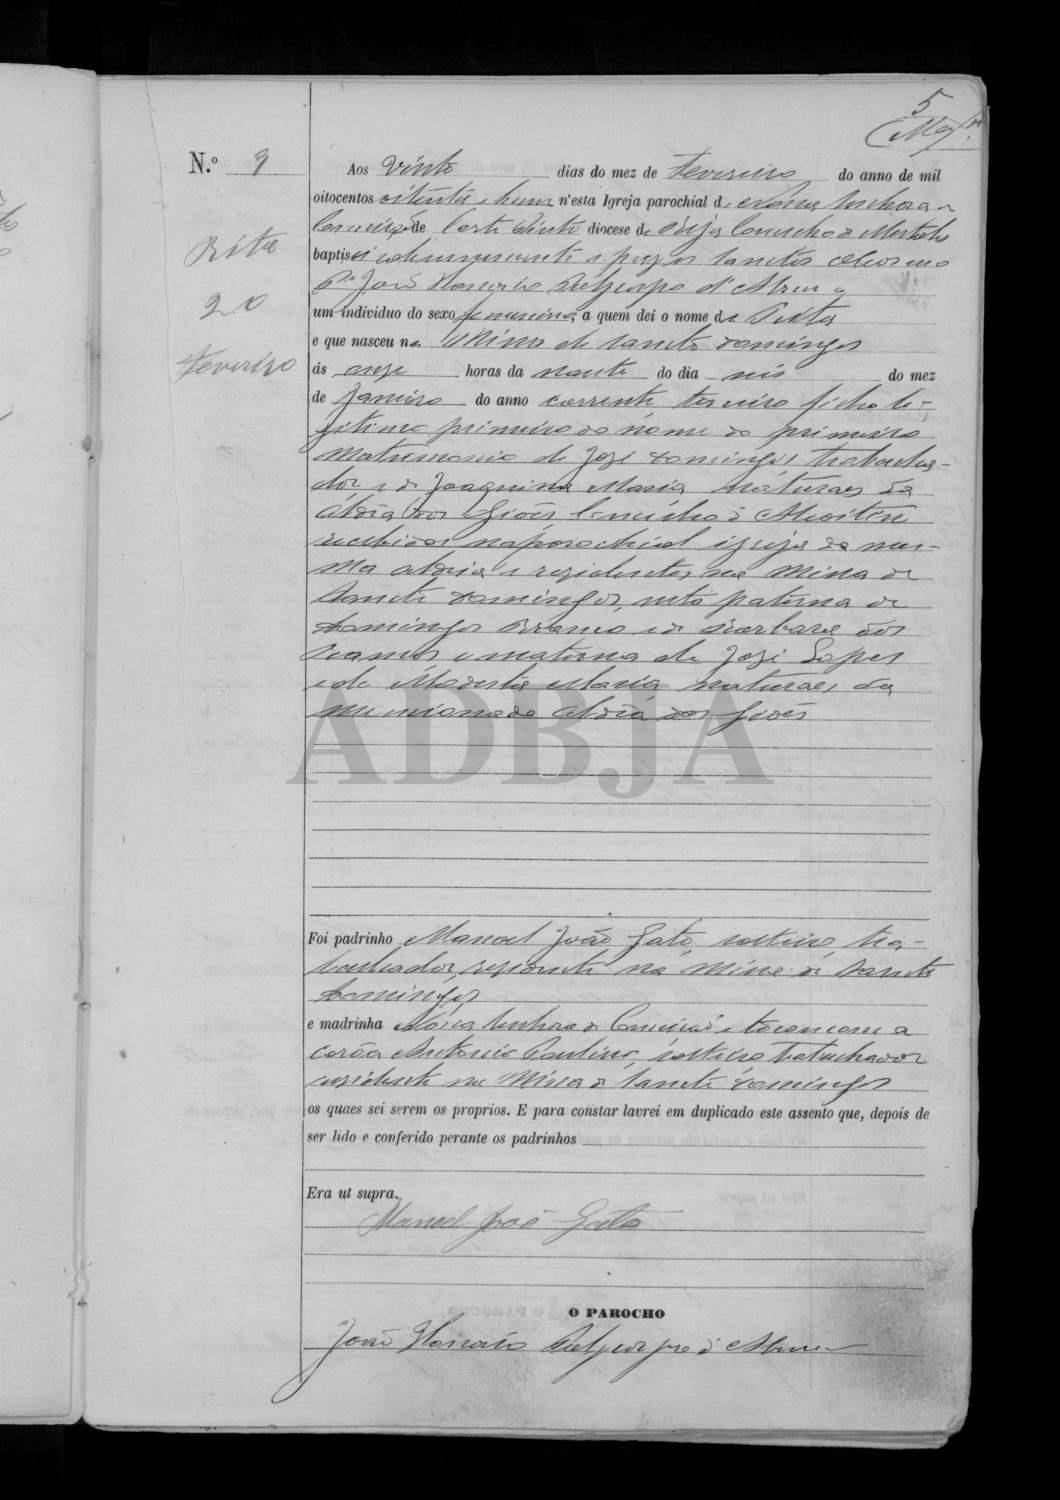 5
N.º 9
Rita
20
Fevereiro
Aos vinte dias do mez de Fevereiro do anno de mil
oitocentos oitenta e hum n'esta Igreja parochial de Nossa Senhora da
Conceição de Corte do Pinto diocese de Beja Concelho de Mertola
baptisei solemnemente e puz os sanctos oleos eu
Pe João Honorio d'Abreu a
um individuo do sexo femenino, a quem dei o nome de Rita
e que nasceu na Mina de Sancto Domingos
ás onze horas da noute do dia seis do mez
de Janeiro do anno corrente terceiro filho le-
gitimo primeiro do nome do primeiro
matrimonio de José Domingos trabalha-
dor e de Joaquina Maria naturaes da
Aldeia dos Giões Concelho d'Alcoitim
recebidos na parochial igreja da mes-
ma aldeia e residentes na Mina de
Sancto Domingos, neta paterna de
Domingos Branco e de Barbara dos
Ramos e materna de José Lopes
e de Modesta Maria naturaes da
mencionada Aldeia dos Giões
ADBJA
Foi padrinho Manoel João Gato, solteiro, tra-
balhador, residente na Mina de Sancto
Domingos
e madrinha Nossa Senhora da Conceição e tocou com a
corôa Antonio Paulino, solteiro trabalhador
residente na Mina de Sancto Domingos
os quaes sei serem os proprios. E para constar lavrei em duplicado este assento que, depois de
ser lido e conferido perante os padrinhos
Era ut supra.
Manoel João Gato
O PAROCHO
João Honorio d'Abreu